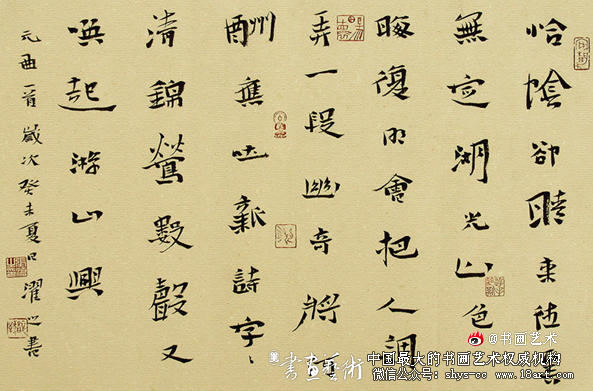 恰陰卻晴来往雲
無定湖光山色
晦復明會把人調
弄一段幽奇將何
酬應吐新詩字ヽ
清錦鶯數聲又
喚起游山興
元曲一首歲次癸未夏日濯之書
書畫藝術
@书画艺术
中国最大的书画艺术权威机构
微信公众号：shys-cc www.18art.com